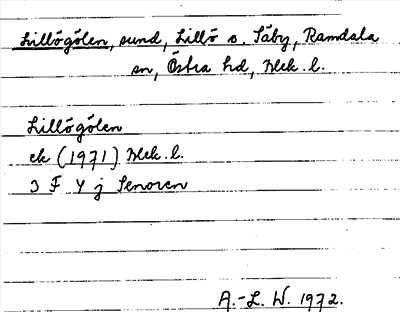 Lillögölen, sund, Lillö o. Säby, Ramdala
sn, Östra hd, Blek. l.
Lillögölen
ek (1971) Blek. l.
3 F 4 j Senoren
A.-L. W. 1972.